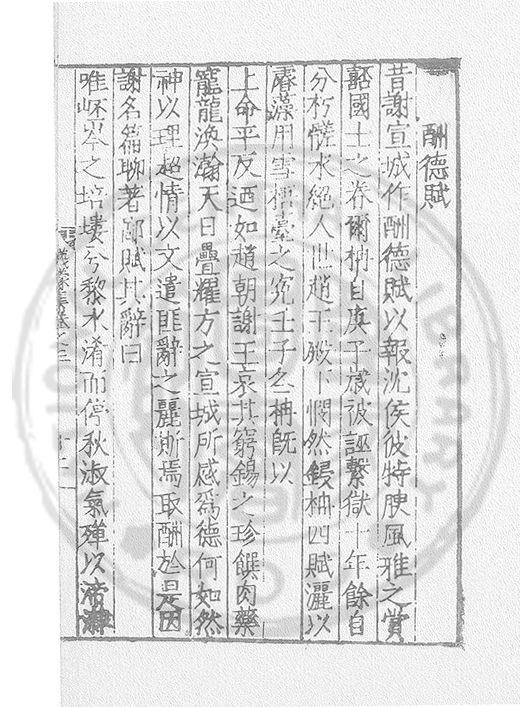 酬德賦
昔謝宣城作酬德賦以報沈侯彼特腴風雅之賞
國士之眷爾柟自庚子歲被誣繫獄十年餘自
分析水絕人世趙王殿下憫然鍰柟四賦灑以
睿藻用雪梧臺之冤壬子冬柟旣以
上命平反迺如趙朝謝王哀其窮錫之珍饌肉藥
寵龍渙瀚天日疊耀方之宣城所感爲德何如然
神以理超情以文遣匪辭之麗斯焉取酬於是因
謝名篇聊著鄙賦其辭曰
蠛蠓集卷之三
唯岯岑之培塿兮黎水淆而停秋淑氣殫以